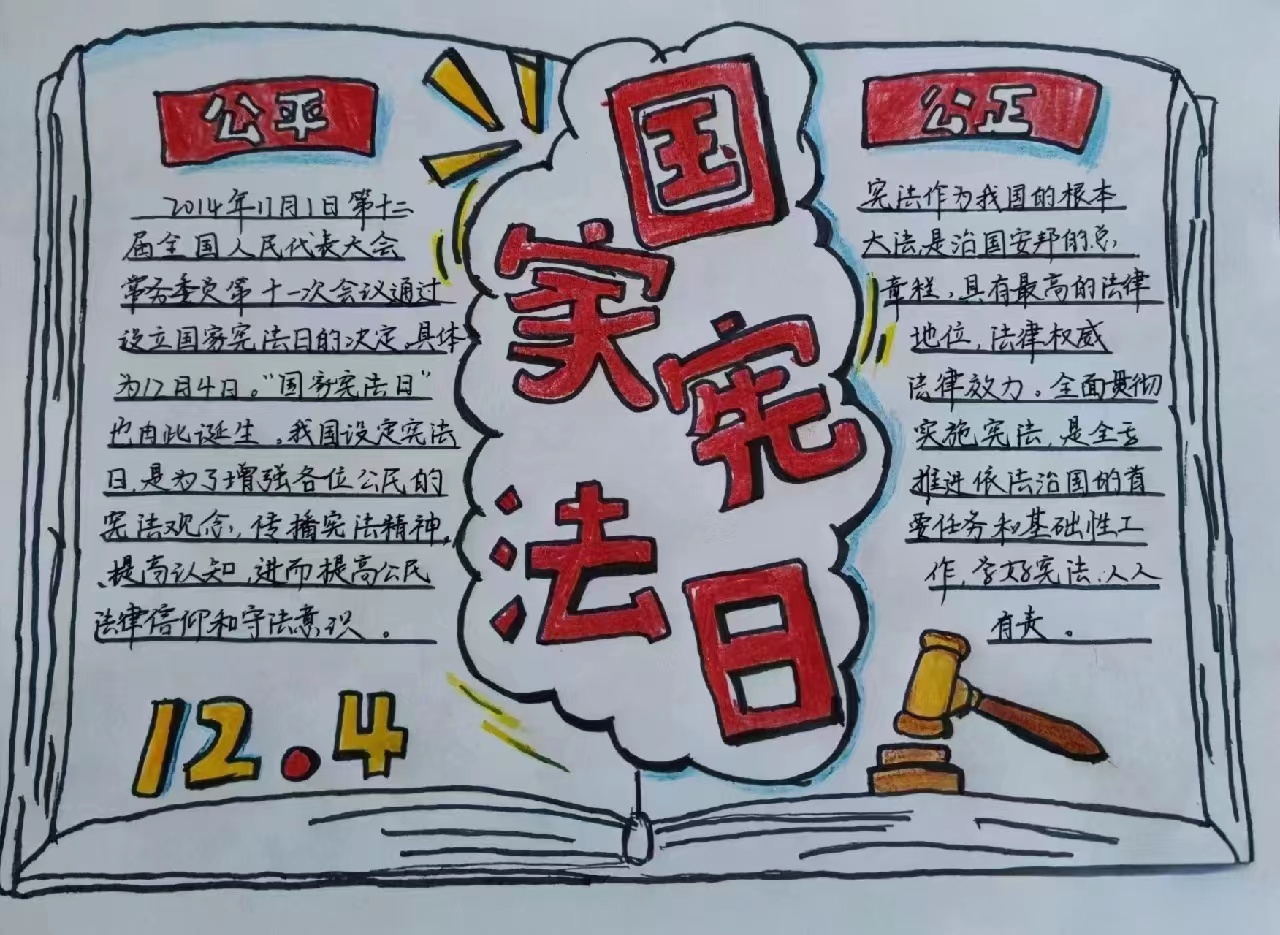 公平
2014年11月1日第十二
届全国人民代表大会
常务委员第十一次会议通过
设立国家宪法日的决定,具体
为12月4日。“国家宪法日”
也由此诞生。我国设定宪法
日,是为了增强各位公民的
宪法观念,传播宪法精神,
提高认知,进而提高公民
法律信仰和守法意识。
12.4
国
家
宪
法
日
公正
宪法作为我国的根本
大法,是治国安邦的总
章程,具有最高的法律
地位,法律权威
法律效力。全面贯彻
实施宪法,是全面
推进依法治国的首
要任务和基础性工
作,学好宪法,人人
有责。